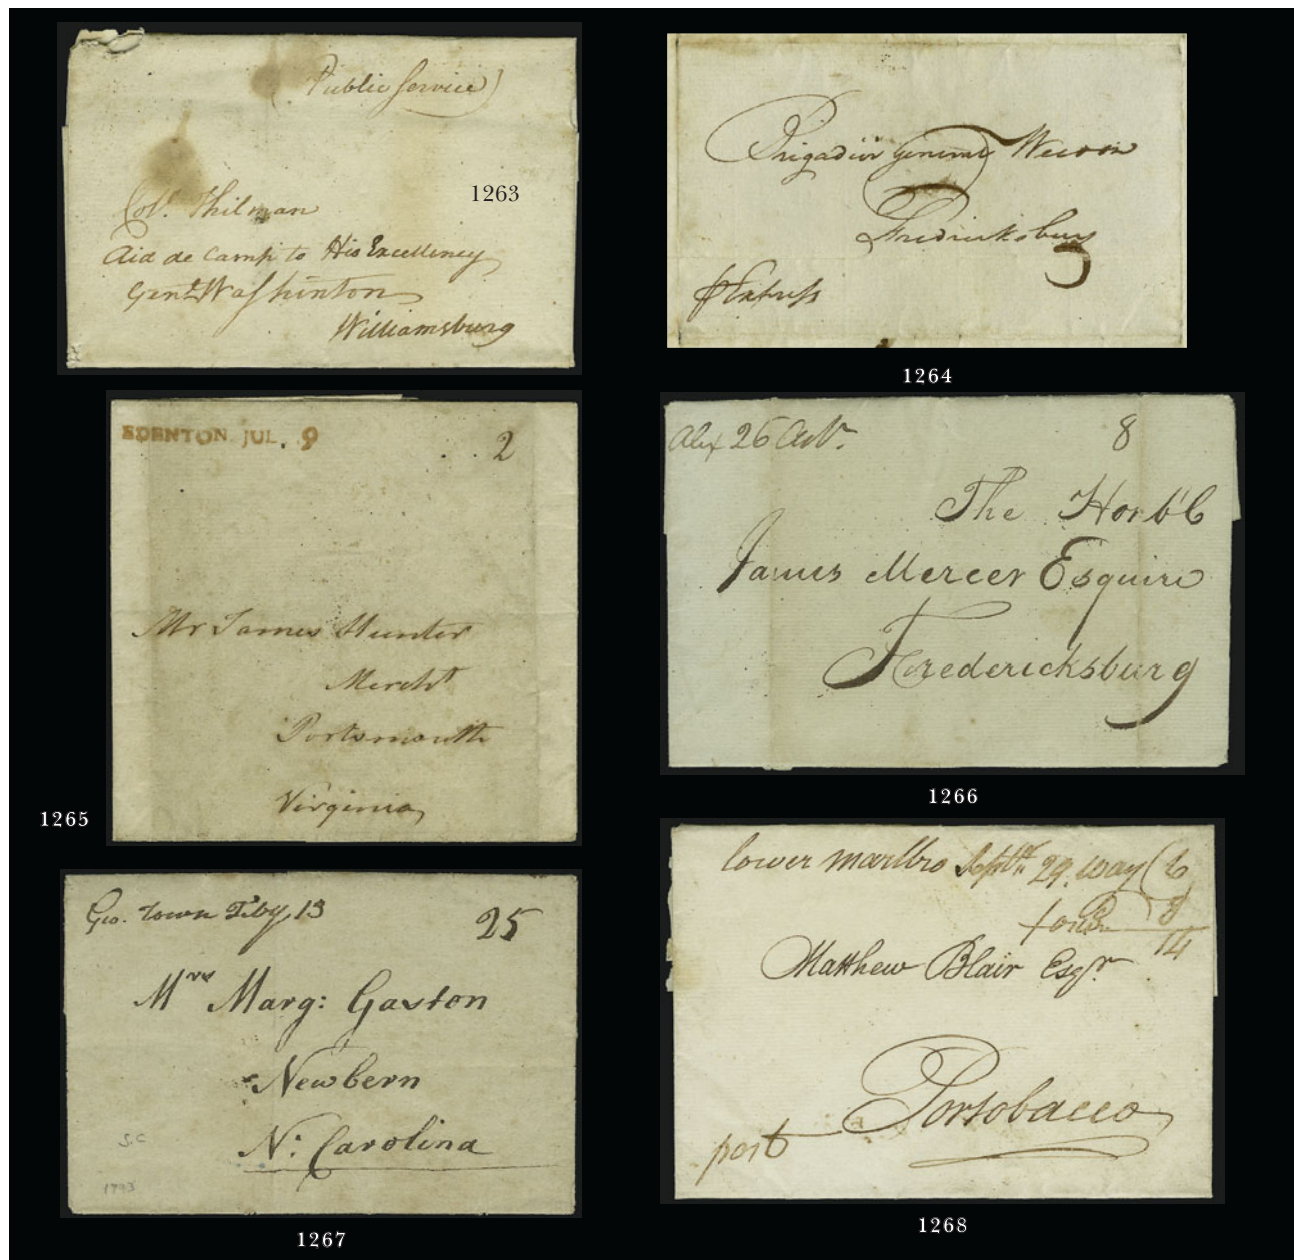 (Public Service)
1263
Colo. Thilman
Aid de Camp to His Excellency
Genl. Washinton
Williamsburg
Brigadier General
Fredericksburg
Express
1264
EDENTON JUL. 9
2
Mr James Hunter
Mercht
Portsmouth
Virginia
1265
Alex 26
8
The Honb'l
James Mercer Esquire
Fredericksburg
1266
Geo. town Feby 13
25
Mrs Marg: Gaston
Newbern
N: Carolina
S.C
1793
1267
lower marlbro Septr. 29. way (6
8
14
Matthew Blair Esqr.
Portobacco
post
1268